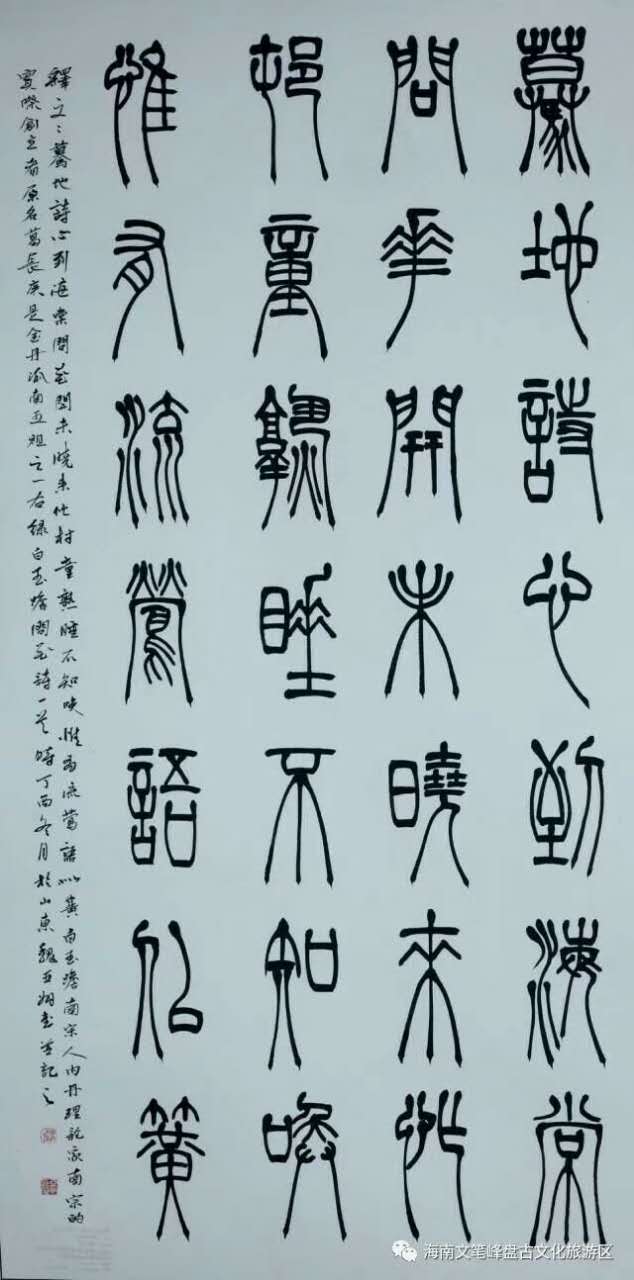 驀地詩心到海棠
問花開未曉來忙
邨童孰睡不知喚
惟有流鶯語侣簧
釋文：驀地詩心到海棠問花開未曉來忙村童熟睡不知喚惟有流鶯語似簧白玉蟾南宋人内丹理論家南宗的
實際創立者原名葛長庚是金丹派南五祖之一右錄白玉蟾問花詩一首時丁酉冬月於山東魏亞書並記之
海南文笔峰盘古文化旅游区